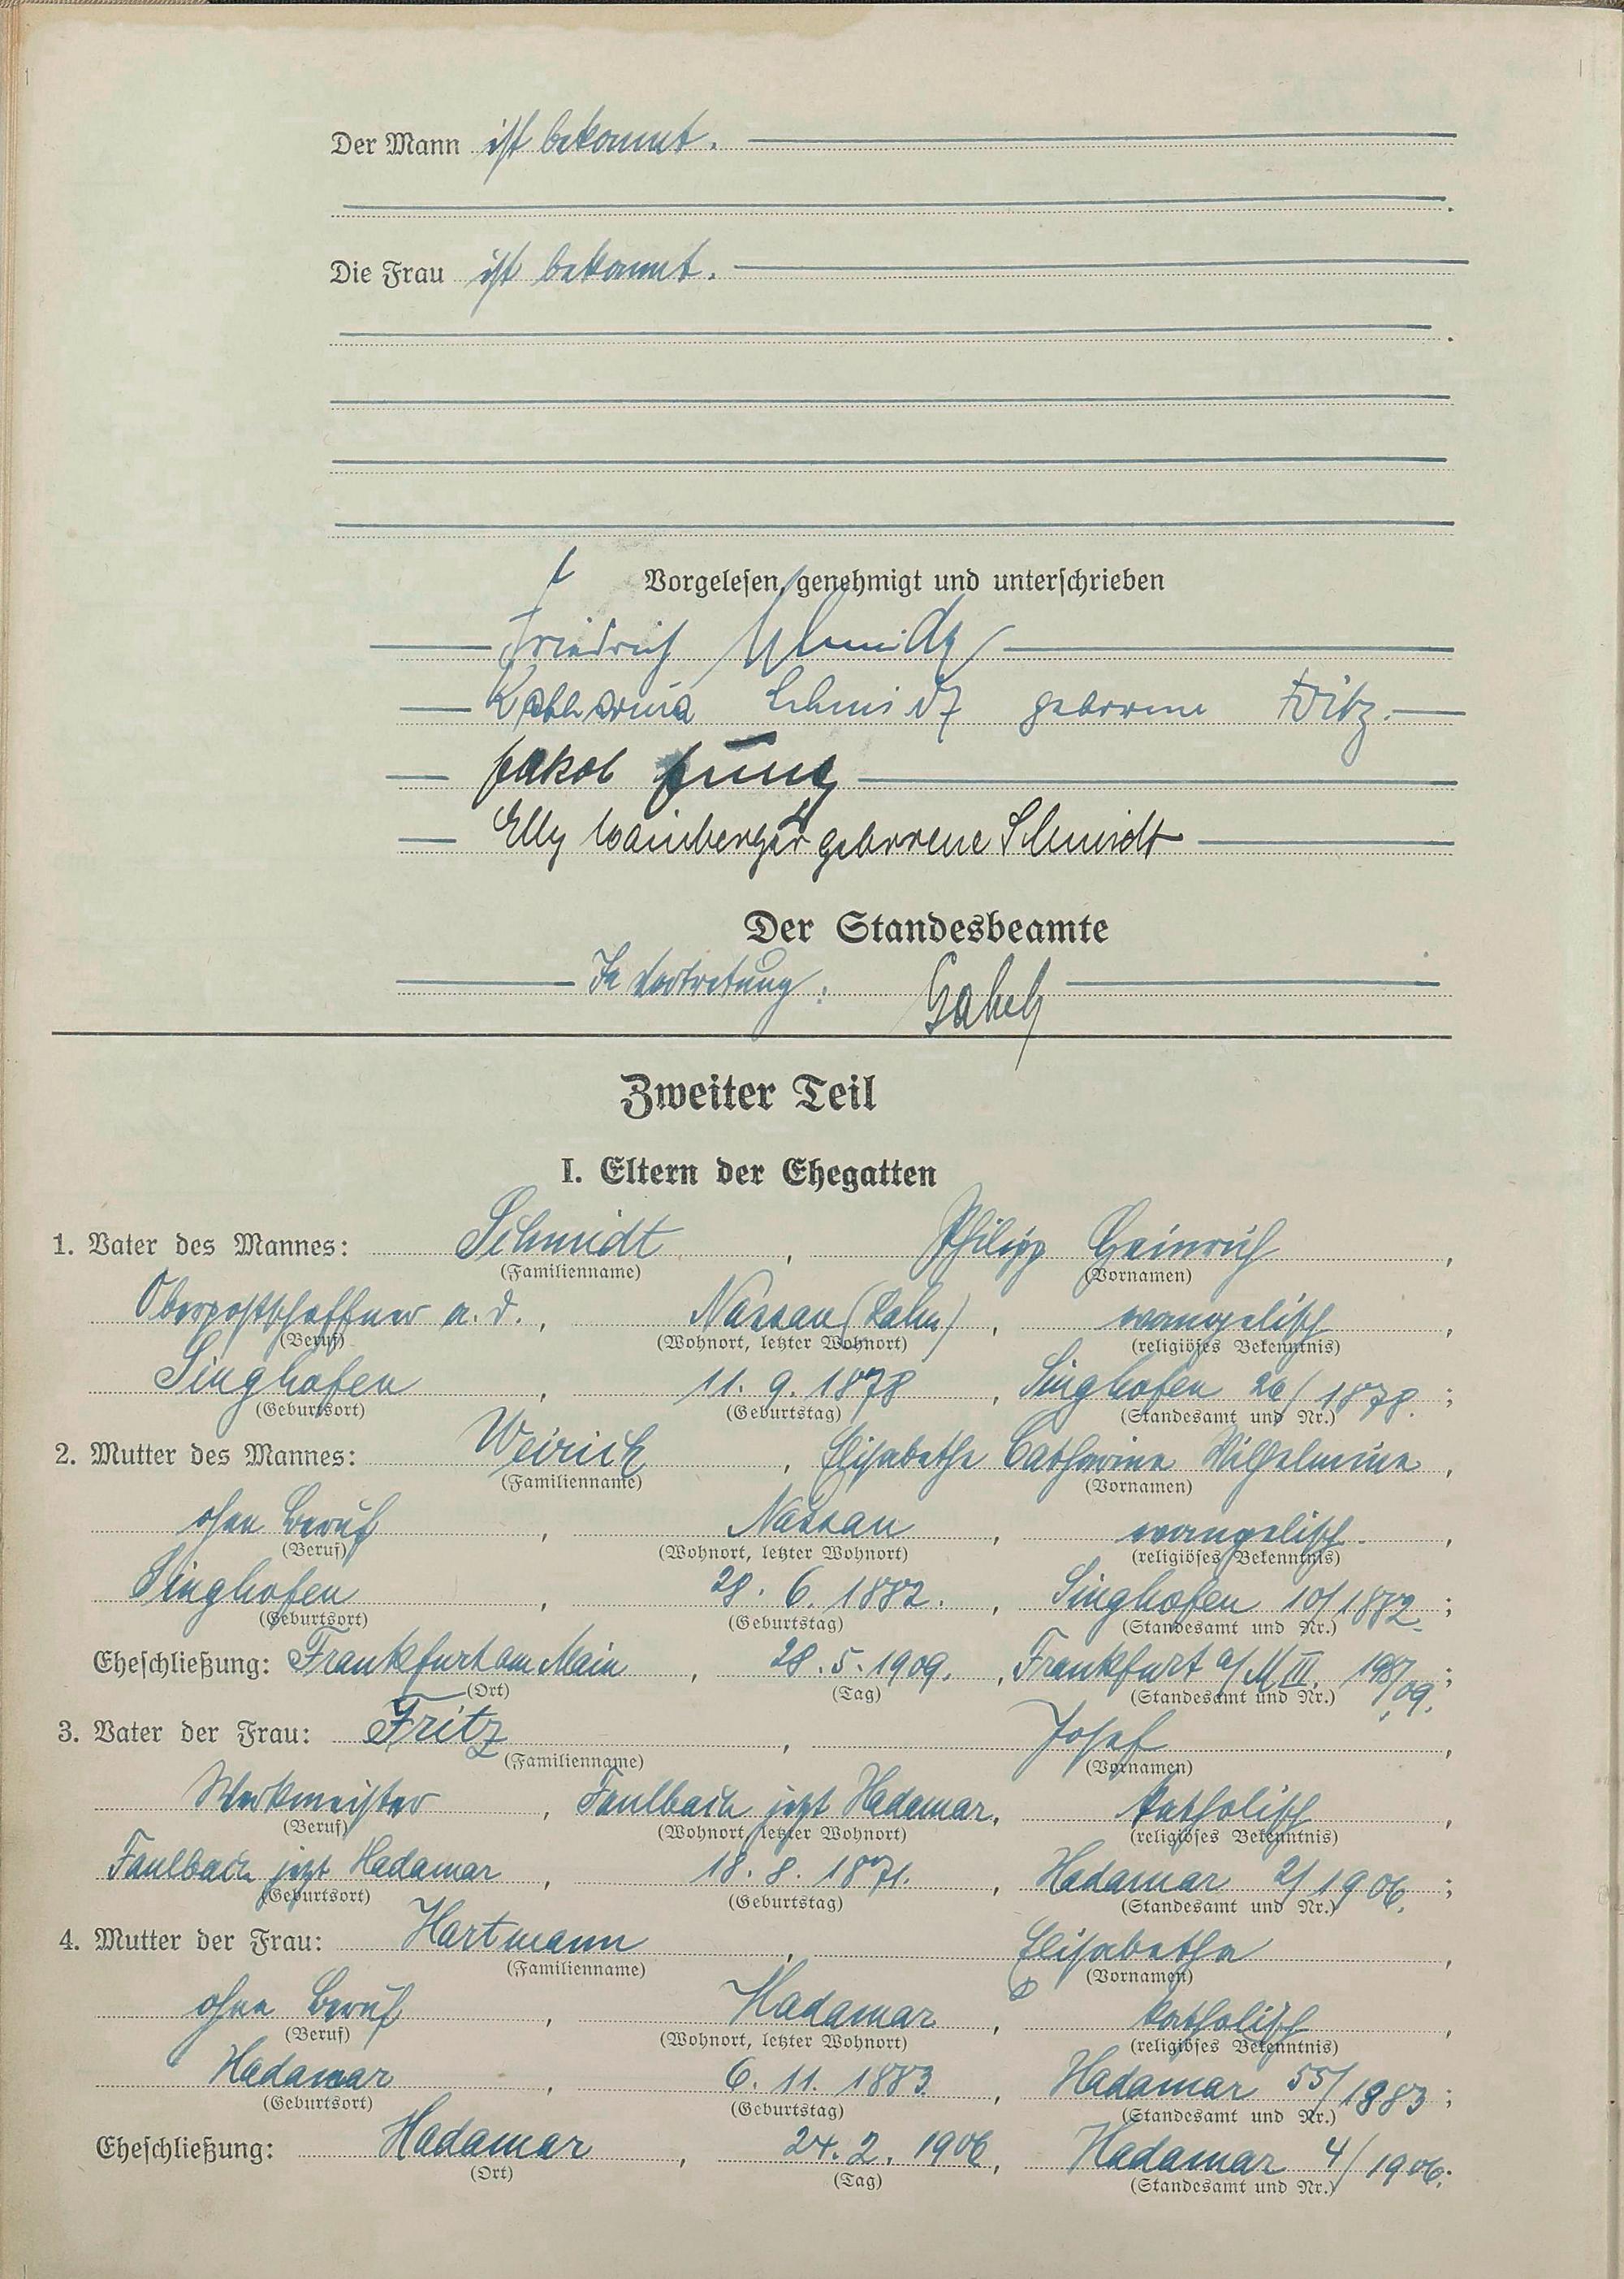 Der Mann ist bekannt.
Die Frau ist bekannt.
Vorgelesen, genehmigt und unterschrieben
Friedrich Schmidt
Katharina Schmidt geborene Fritz.
Jakob Jung
Elly geborene Schmidt
Der Standesbeamte
In Vertretung:
Zweiter Teil
I. Eltern der Ehegatten
1. Vater des Mannes: Schmidt, Philipp Heinrich,
(Familienname) (Vornamen)
Oberpostschaffner a. D., Nassau (Lahn), evangelisch,
(Beruf) (Wohnort, letzter Wohnort) (religiöses Bekenntnis)
Singhofen, 11. 9. 1878, Singhofen 26/1878.;
(Geburtsort) (Geburtstag) (Standesamt und Nr.)
2. Mutter des Mannes: Weirich, Elisabethe Catharine Wilhelmine,
(Familienname) (Vornamen)
ohne Beruf, Nassau, evangelisch,
(Beruf) (Wohnort, letzter Wohnort) (religiöses Bekenntnis)
Singhofen, 28. 6. 1882., Singhofen 10/1882.;
(Geburtsort) (Geburtstag) (Standesamt und Nr.)
Eheschließung: Frankfurt am Main, 28. 5. 1909., Frankfurt a/M III. 198/09.;
(Ort) (Tag) (Standesamt und Nr.)
3. Vater der Frau: Fritz, Josef,
(Familienname) (Vornamen)
Werkmeister, Faulbach jetzt Hadamar, katholisch,
(Beruf) (Wohnort, letzter Wohnort) (religiöses Bekenntnis)
Faulbach jetzt Hadamar, 18. 8. 1871., Hadamar 2/1906.;
(Geburtsort) (Geburtstag) (Standesamt und Nr.)
4. Mutter der Frau: Hartmann, Elisabetha,
(Familienname) (Vornamen)
ohne Beruf, Hadamar, katholisch,
(Beruf) (Wohnort, letzter Wohnort) (religiöses Bekenntnis)
Hadamar, 6. 11. 1883, Hadamar 55/1883;
(Geburtsort) (Geburtstag) (Standesamt und Nr.)
Eheschließung: Hadamar, 24. 2. 1906, Hadamar 4/1906.
(Ort) (Tag) (Standesamt und Nr.)